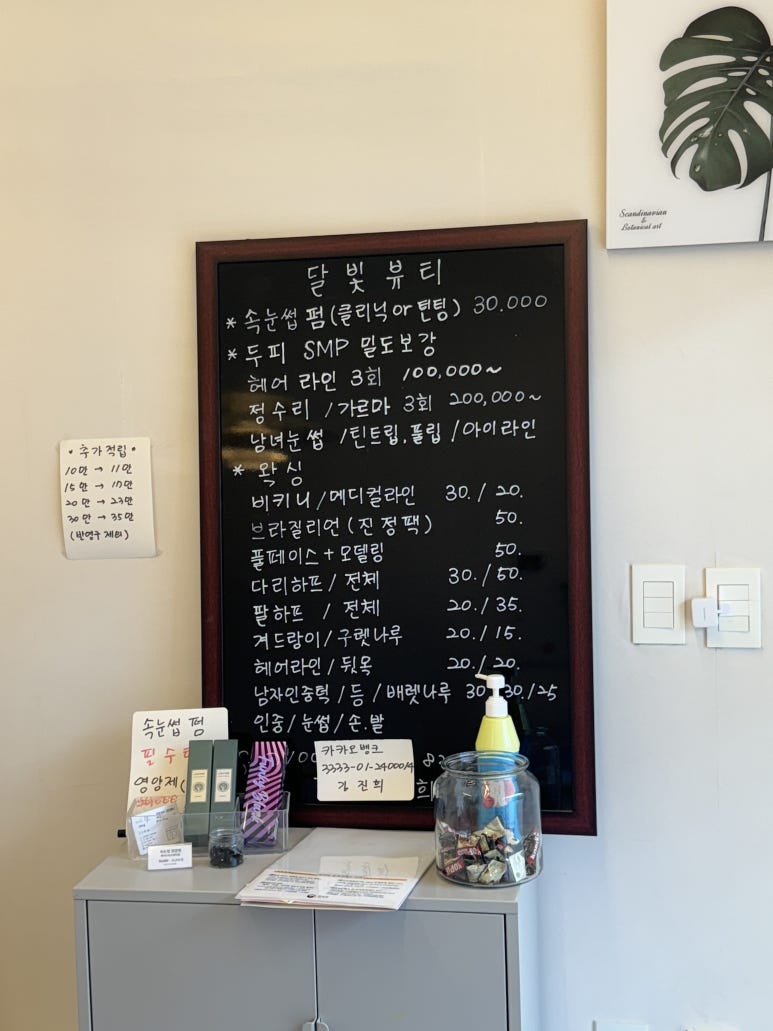 Scandinavian
&
Botanical art
달빛뷰티
* 속눈썹 펌 (클리닉 or 틴팅) 30.000
* 두피 SMP 밀도보강
헤어 라인 3회 100,000~
정수리 / 가르마 3회 200,000~
남녀눈썹 / 틴트립, 풀립 / 아이라인
* 왁싱
비키니 / 메디컬라인 30. / 20.
브라질리언 (진정팩) 50.
풀페이스 + 모델링 50.
다리하프 / 전체 30. / 50.
팔하프 / 전체 20. / 35.
겨드랑이 / 구렛나루 20. / 15.
헤어라인 / 뒷목 20. / 20.
남자인중턱 / 등 / 배렛나루 30. 30. / 25
인중 / 눈썹 / 손.발
• 추가적립 •
10만 → 11만
15만 → 17만
20만 → 23만
30만 → 35만
(반영구 제외)
속눈썹 펌
필수
영양제
카카오뱅크
3333-01-2400014
김진희